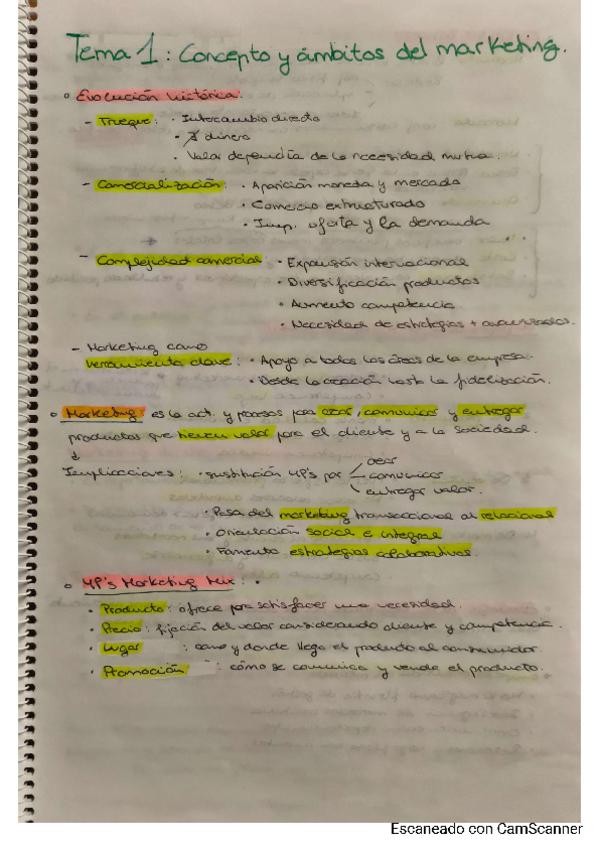 Tema 1: Concepto y ámbitos del marketing.
° Evolución histórica:
- Trueque: • Intercambio directo
• dinero
• Valor dependía de la necesidad mutua.
- Comercialización: • Aparición moneda y mercado
• Comercio estructurado
• Imp. oferta y la demanda
- Complejidad comercial: • Expansión internacional
• Diversificación productos
• Aumento competencia
• Necesidad de estrategias + avanzadas.
- Marketing como
herramienta clave: • Apoyo a todas las áreas de la empresa.
• Desde la creación hasta la fidelización.
° Marketing: es la act. y procesos para crear, comunicar y entregar
productos que tienen valor para el cliente y a la sociedad.
↓
Implicaciones: • sustitución 4P's por crear
comunicar
entregar valor.
• Pasa del marketing transaccional al relacional
• Orientación social e integral
• Fomento estrategias colaborativas.
° 4P's Marketing Mix: •
• Producto: ofrece para satisfacer una necesidad.
• Precio: fijación del valor considerando cliente y competencia.
• Lugar : como y donde llega el producto al consumidor.
• Promoción : cómo se comunica y vende el producto.
Escaneado con CamScanner